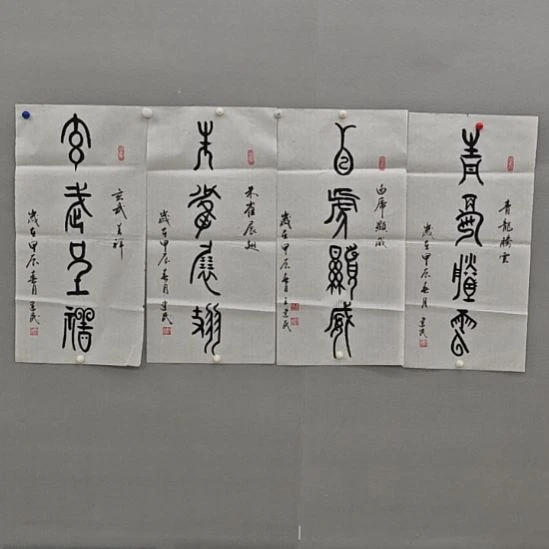 青龍騰雲
青龍騰雲
歲在甲辰春月建民
白虎顯威
白虎顯威
歲在甲辰春月王建民
朱雀展翅
朱雀展翅
歲在甲辰春月建民
玄武呈祥
玄武呈祥
歲在甲辰春月建民